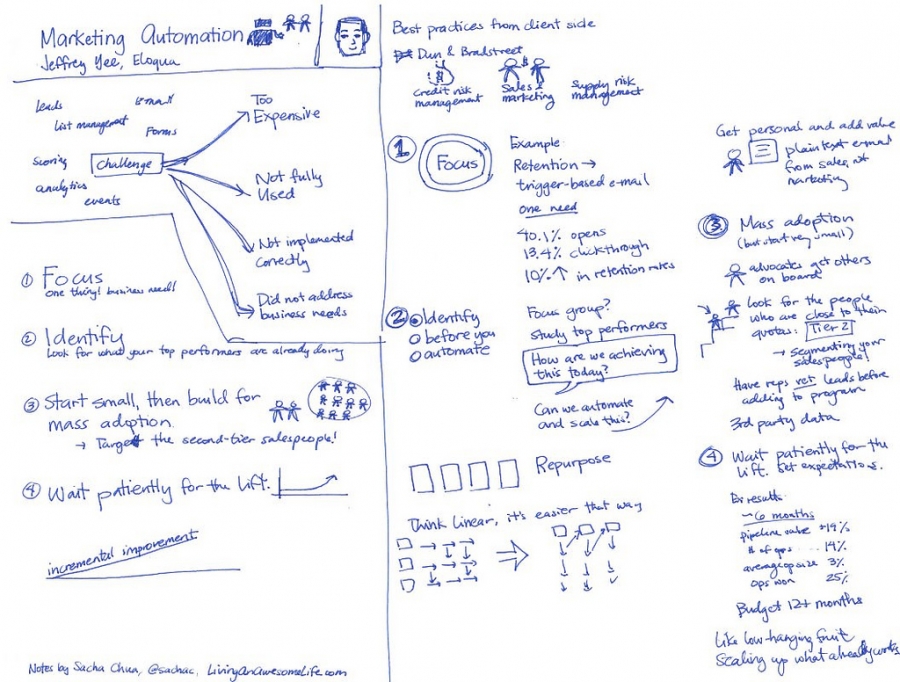 Marketing Automation
Jeffrey Yee, Eloqua
Leads
E-mail
List management
Forms
Scoring
Challenge
analytics
events
Too
Expensive
Not fully
Used
Not implemented
correctly
Did not address
business needs
① Focus
One thing! business need!
② Identify
Look for what your top performers are already doing
③ Start small, then build for
mass adoption.
→ Target the second-tier salespeople!
④ Wait patiently for the lift.
incremental improvement
Notes by Sacha Chua, @sachac, LivingAnAwesomeLife.com
Best practices from client side
Dun & Bradstreet
$
$
Credit risk
management
Sales &
marketing
Supply risk
management
1.
Focus
Example:
Retention →
trigger-based e-mail
one need
40.1% opens
13.4% clickthrough
10% ↑ in retention rates
2
Identify
before you
automate
Focus group?
Study top performers
How are we achieving
this today?
Can we automate
and scale this?
Repurpose
Think linear, it's easier that way
Get personal and add value
plaintext e-mail
from sales, not
marketing
③ Mass adoption
(but start very small)
advocates get others
on board
look for the people
who are close to their
quotas: Tier 2
→ Segmenting your
salespeople!
Have reps vet leads before
adding to program
3rd party data
④ Wait patiently for the
lift. Set expectations.
Ex results:
~6 months
pipeline value +19%
# of ops .... 14%
average op size 3%
ops won 25%
Budget 12+ months
Like low-hanging fruit
Scaling up what already works